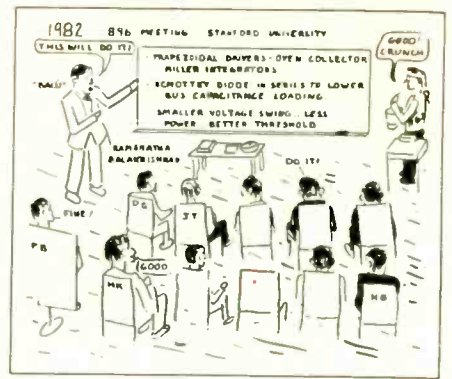 1982 896 MEETING STANFORD UNIVERSITY
THIS WILL DO IT!
GOOD!
CRUNCH
"BALU"
- TRAPEZOIDAL DRIVERS - OPEN COLLECTOR
MILLER INTEGRATORS
- SCHOTTKY DIODE IN SERIES TO LOWER
BUS CAPACITANCE LOADING.
SMALLER VOLTAGE SWING.. LESS
POWER BETTER THRESHOLD
RAMANATHA
BALAKRISHNAN
DO IT!
FINE!
DG
JT
PB
GOOD
MK